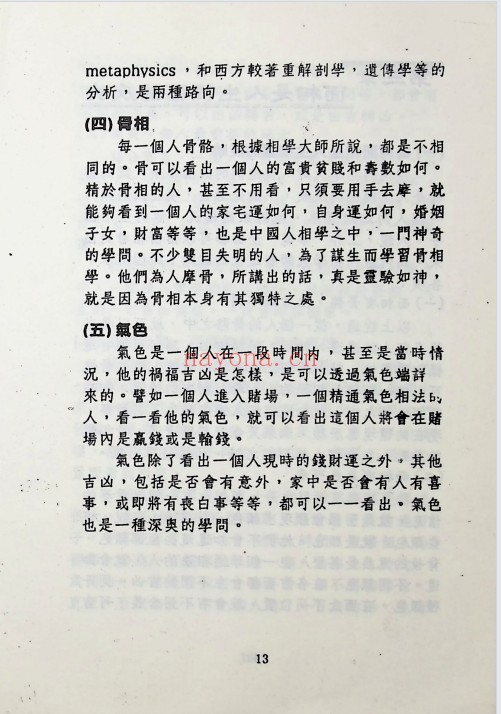 metaphysics，和西方較著重解剖學，遺傳學等的
分析，是兩種路向。
(四)骨相
每一個人骨骼，根據相學大師所說，都是不相
同的。骨可以看出一個人的富貴貧賤和壽數如何。
精於骨相的人，甚至不用看，只須要用手去摩，就
能夠看到一個人的家宅運如何，自身運如何，婚姻
子女，財富等等，也是中國人相學之中，一門神奇
的學問。不少雙目失明的人，為了謀生而學習骨相
學。他們為人摩骨，所講出的話，真是靈驗如神，
就是因為骨相本身有其獨特之處。
(五)氣色
氣色是一個人在一段時間內，甚至是當時情
況，他的禍福吉凶是怎樣，是可以透過氣色端詳
來的。譬如一個人進入賭場，一個精通氣色相法的
人，看一看他的氣色，就可以看出這個人將會在賭
場內是贏錢或是輸錢。
氣色除了看出一個人現時的錢財運之外，其他
吉凶，包括是否會有意外，家中是否會有人有喜
事，或即將有喪白事等等，都可以一一看出。氣色
也是一種深奥的學問。
hayona.cn
13